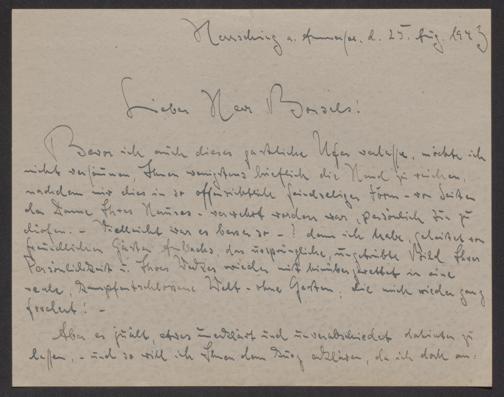 Herrsching a. Ammersee. d. 25. Aug. 1943
Lieber Herr Bonsels!
Bevor ich auch dieses gastliche Ufer verlasse, möchte ich
nicht versäumen, Ihnen wenigstens brieflich die Hand zu reichen,
nachdem mir dies in so offensichtlich feindseliger Form - von Seiten
der Dame Ihres Hauses - verwehrt worden war, persönlich tun zu
dürfen. - Vielleicht war es besser so - ! denn ich habe, geleitet von
freundlichen Geistern Ambachs, das ursprüngliche, ungetrübte Bild Ihrer
Persönlichkeit u. Ihres Werkes wieder mit hinübergerettet in eine
reale, kampfentschlossene Welt - ohne Garten, die mich wieder ganz
fordert! -
Aber es quält, etwas ungeklärt und unverabschiedet dahinten zu
lassen, - und so will ich Ihnen denn kurz erklären, da ich doch an-